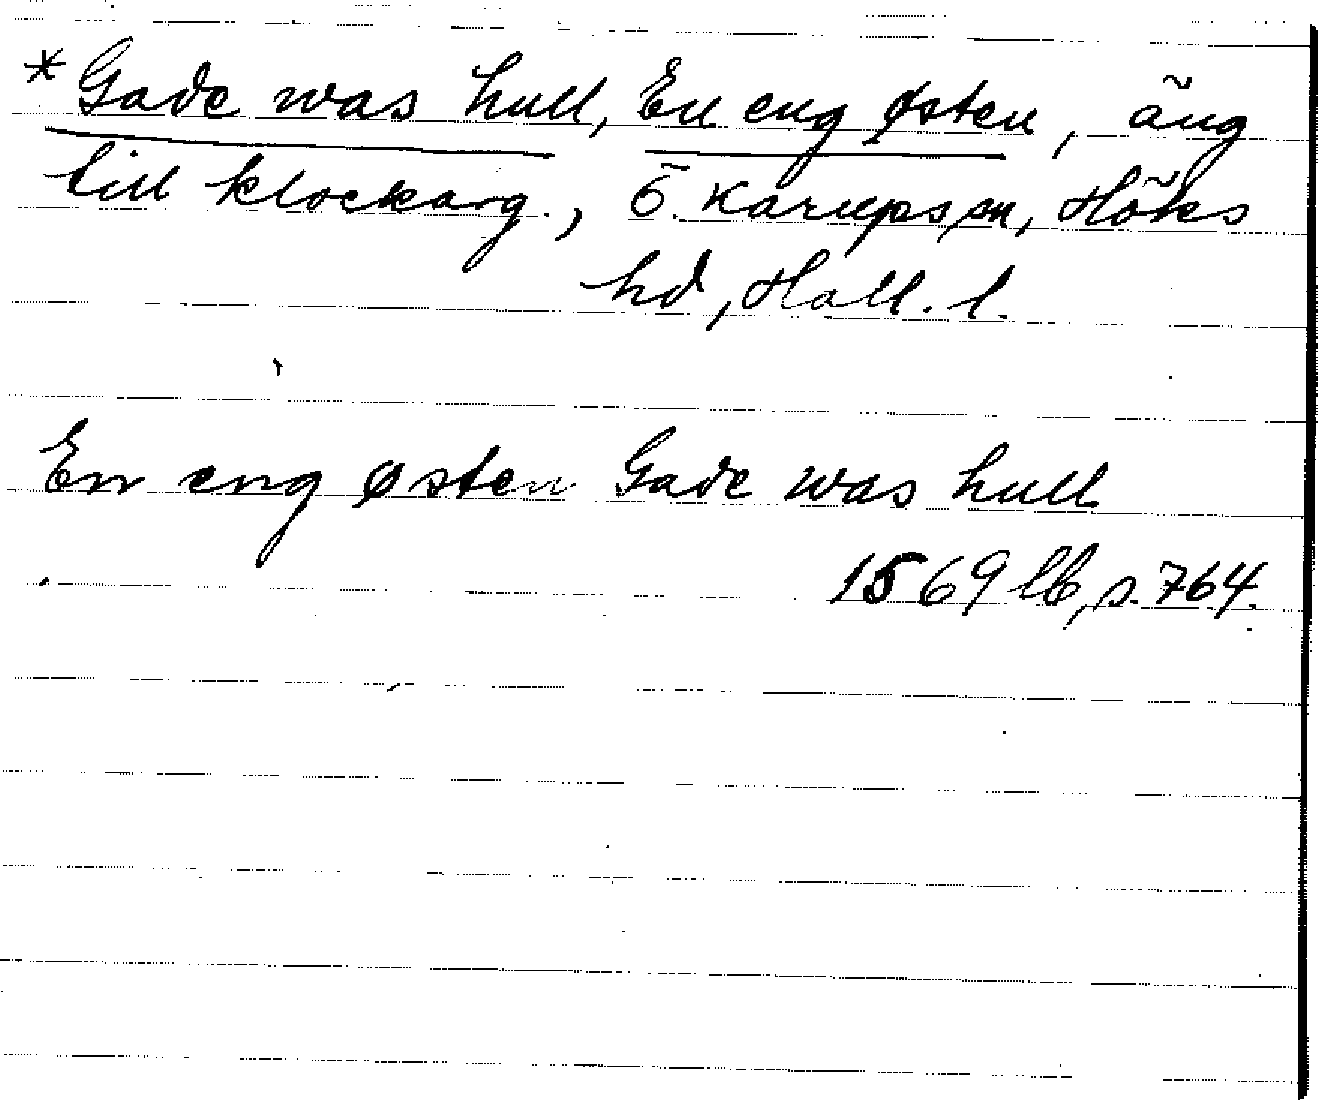 * Gade was hull, En eng østen, äng
till klockarg., Ö. Karups sn, Höks
hd, Hall. l.
En eng østen Gade was hull
1569 lb, s. 764.